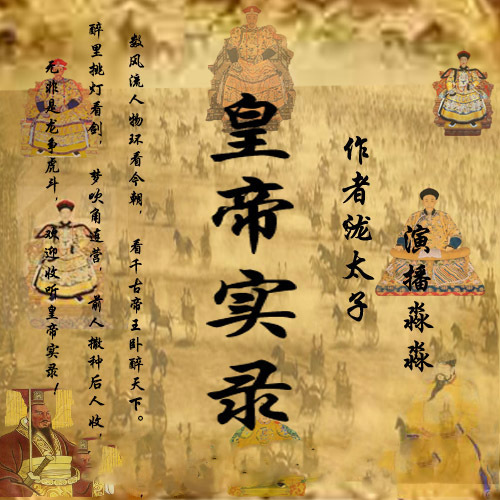 皇帝实录
作者泷太子
演播淼淼
数风流人物环看今朝，看千古帝王卧醉天下。
醉里挑灯看剑，梦吹角连营，前人撒种后人收，
无非是龙争虎斗，欢迎收听皇帝实录！